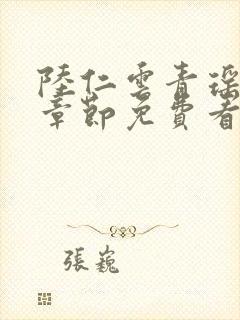 陸仁雲青瑶
章節免費看
張巍